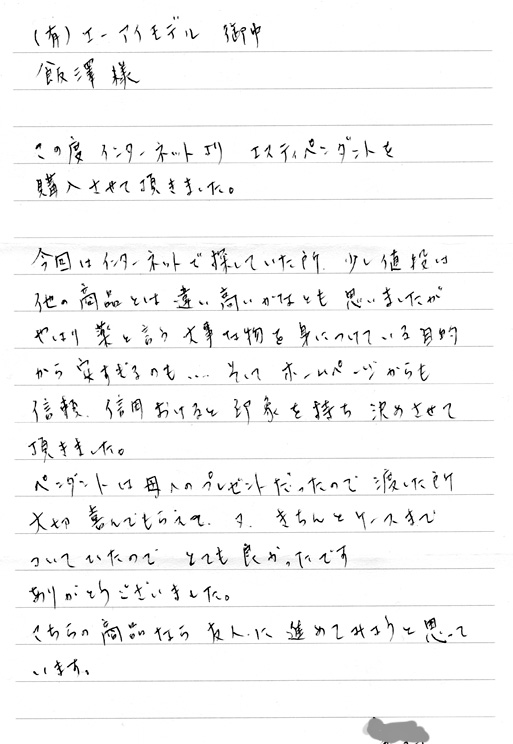 (有)エーアイモデル 御中
飯澤様
この度インターネットより エスティペンダントを
購入させて頂きました。
今回はインターネットで探していた所、少し値段は
他の商品とは違い高いかなとも思いましたが
やはり薬と言う大事な物を身につけている目的
から安すぎるのも…. そして ホームページからも
信頼、信用おけると印象を持ち 決めさせて
頂きました。
ペンダントは母へのプレゼントだったので渡した所
大切喜んでもらえて、又、きちんとケースまで
ついていたので とても良かったです
ありがとうございました。
こちらの商品なら友人に進めてみようと思って
います。